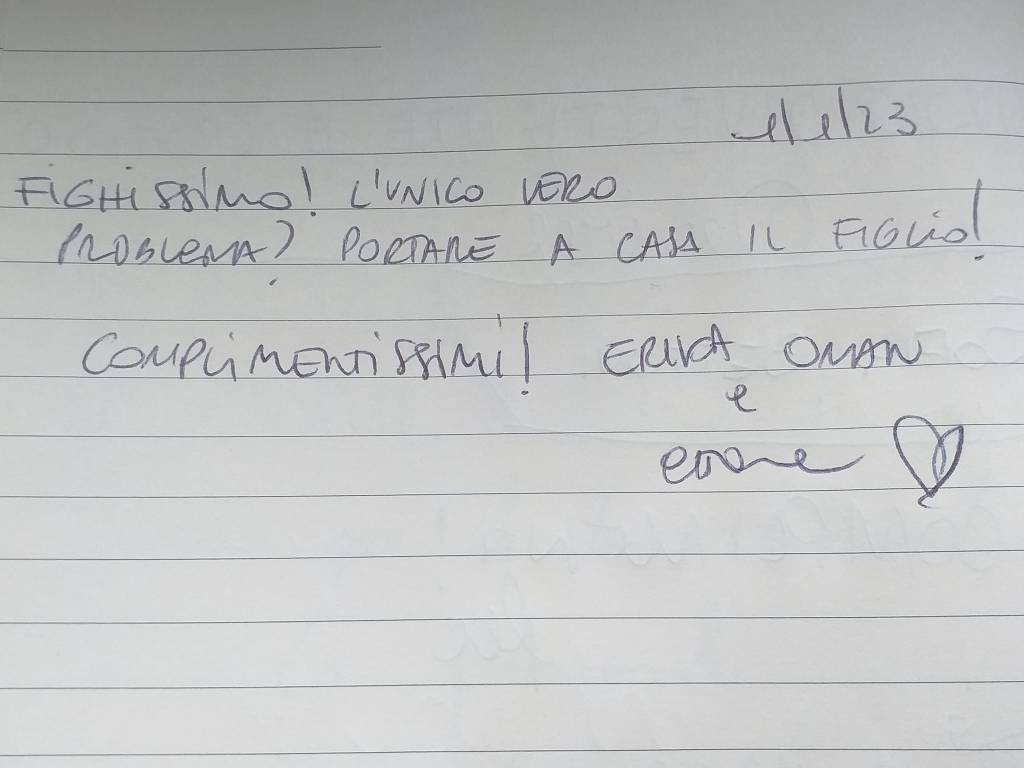 1/1/23
FIGHISSIMO! L'UNICO VERO
PROBLEMA? PORTARE A CASA IL FIGLIO!
COMPLIMENTISSIMI! ERIKA OMAN
e